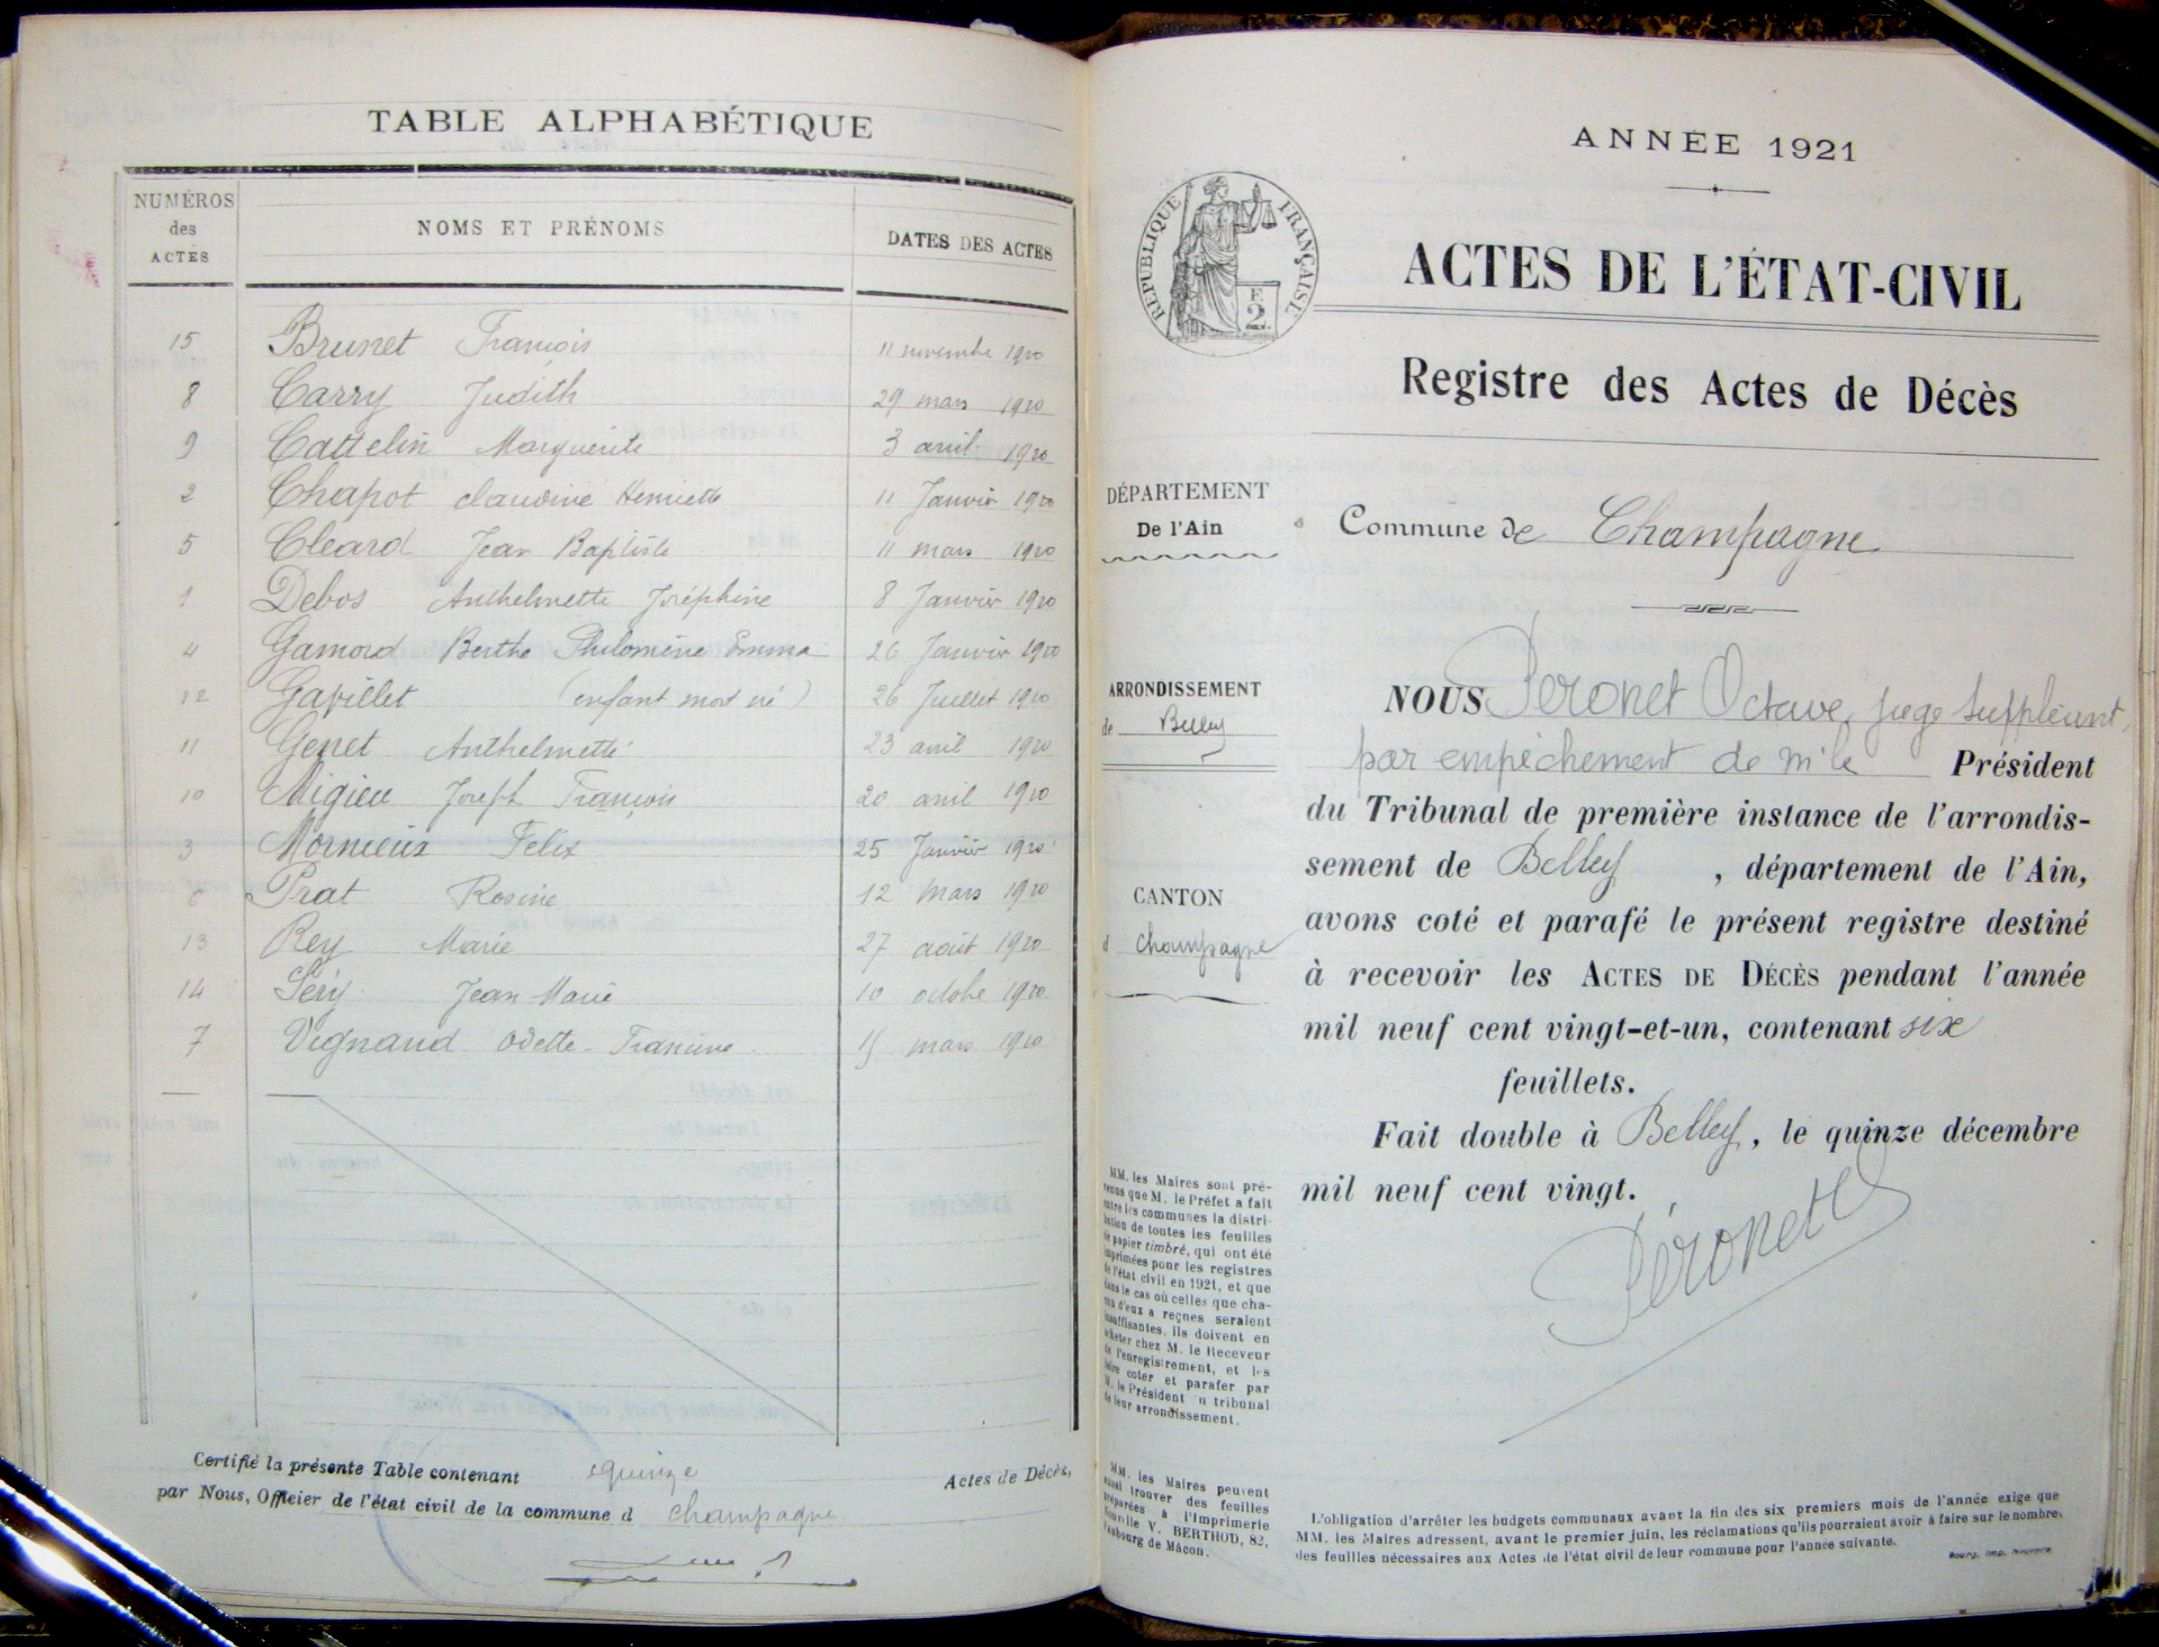 TABLE ALPHABÉTIQUE
NUMÉROS des ACTES NOMS ET PRÉNOMS DATES DES ACTES
15 Brunet François 11 novembre 1920
8 Carry Judith 29 mars 1920
9 Cattelin Marguerite 3 avril 1920
2 Chapot claudine Henriette 11 Janvier 1920
5 Cleard Jean Baptiste 11 mars 1920
1 Debos Anthelmette Joséphine 8 Janvier 1920
4 Gamord Berthe Philomène Emma 26 Janvier 1920
12 Gavillet (enfant mort né) 26 Juillet 1920
11 Genet Anthelmette 23 avril 1920
10 Migieu Joseph François 20 avril 1920
3 Mornieux Felix 25 Janvier 1920
6 Prat Rosine 12 Mars 1920
13 Rey Marie 27 août 1920
14 Séry Jean-Marie 10 octobre 1920
7 Vignand Odette-Francine 15 mars 1920
Certifié la présente Table contenant quinze Actes de Décès,
par Nous, Officier de l'état civil de la commune d champagne
ANNÉE 1921
REPUBLIQUE FRANÇAISE
2
ACTES DE L'ÉTAT-CIVIL
Registre des Actes de Décès
DÉPARTEMENT
De l'Ain
Commune de Champagne
ARRONDISSEMENT
de Belley
CANTON
d champagne
NOUS Péronet Octave, juge suppléant,
par empêchement de m'le Président
du Tribunal de première instance de l'arrondis-
sement de Belley, département de l'Ain,
avons coté et parafé le présent registre destiné
à recevoir les ACTES DE DÉCÈS pendant l'année
mil neuf cent vingt-et-un, contenant six
feuillets.
Fait double à Belley, le quinze décembre
mil neuf cent vingt.
Péronet
MM. les Maires sont pré-
venus que M. le Préfet a fait
entre les communes la distri-
bution de toutes les feuilles
de papier timbré, qui ont été
imprimées pour les registres
de l'état civil en 1921, et que
dans le cas où celles que cha-
cun d'eux a reçues seraient
insuffisantes, ils doivent en
acheter chez M. le Receveur
de l'enregistrement, et les
faire coter et parafer par
M. le Président du tribunal
de leur arrondissement.
MM. les Maires peuvent
aussi trouver des feuilles
préparées à l'Imprimerie
Nouvelle V. BERTHOD, 82,
faubourg de Mâcon.
L'obligation d'arrêter les budgets communaux avant la fin des six premiers mois de l'année exige que
MM. les Maires adressent, avant le premier juin, les réclamations qu'ils pourraient avoir à faire sur le nombre,
des feuilles nécessaires aux Actes de l'état civil de leur commune pour l'année suivante.
Bourg, imp. Nouvelle